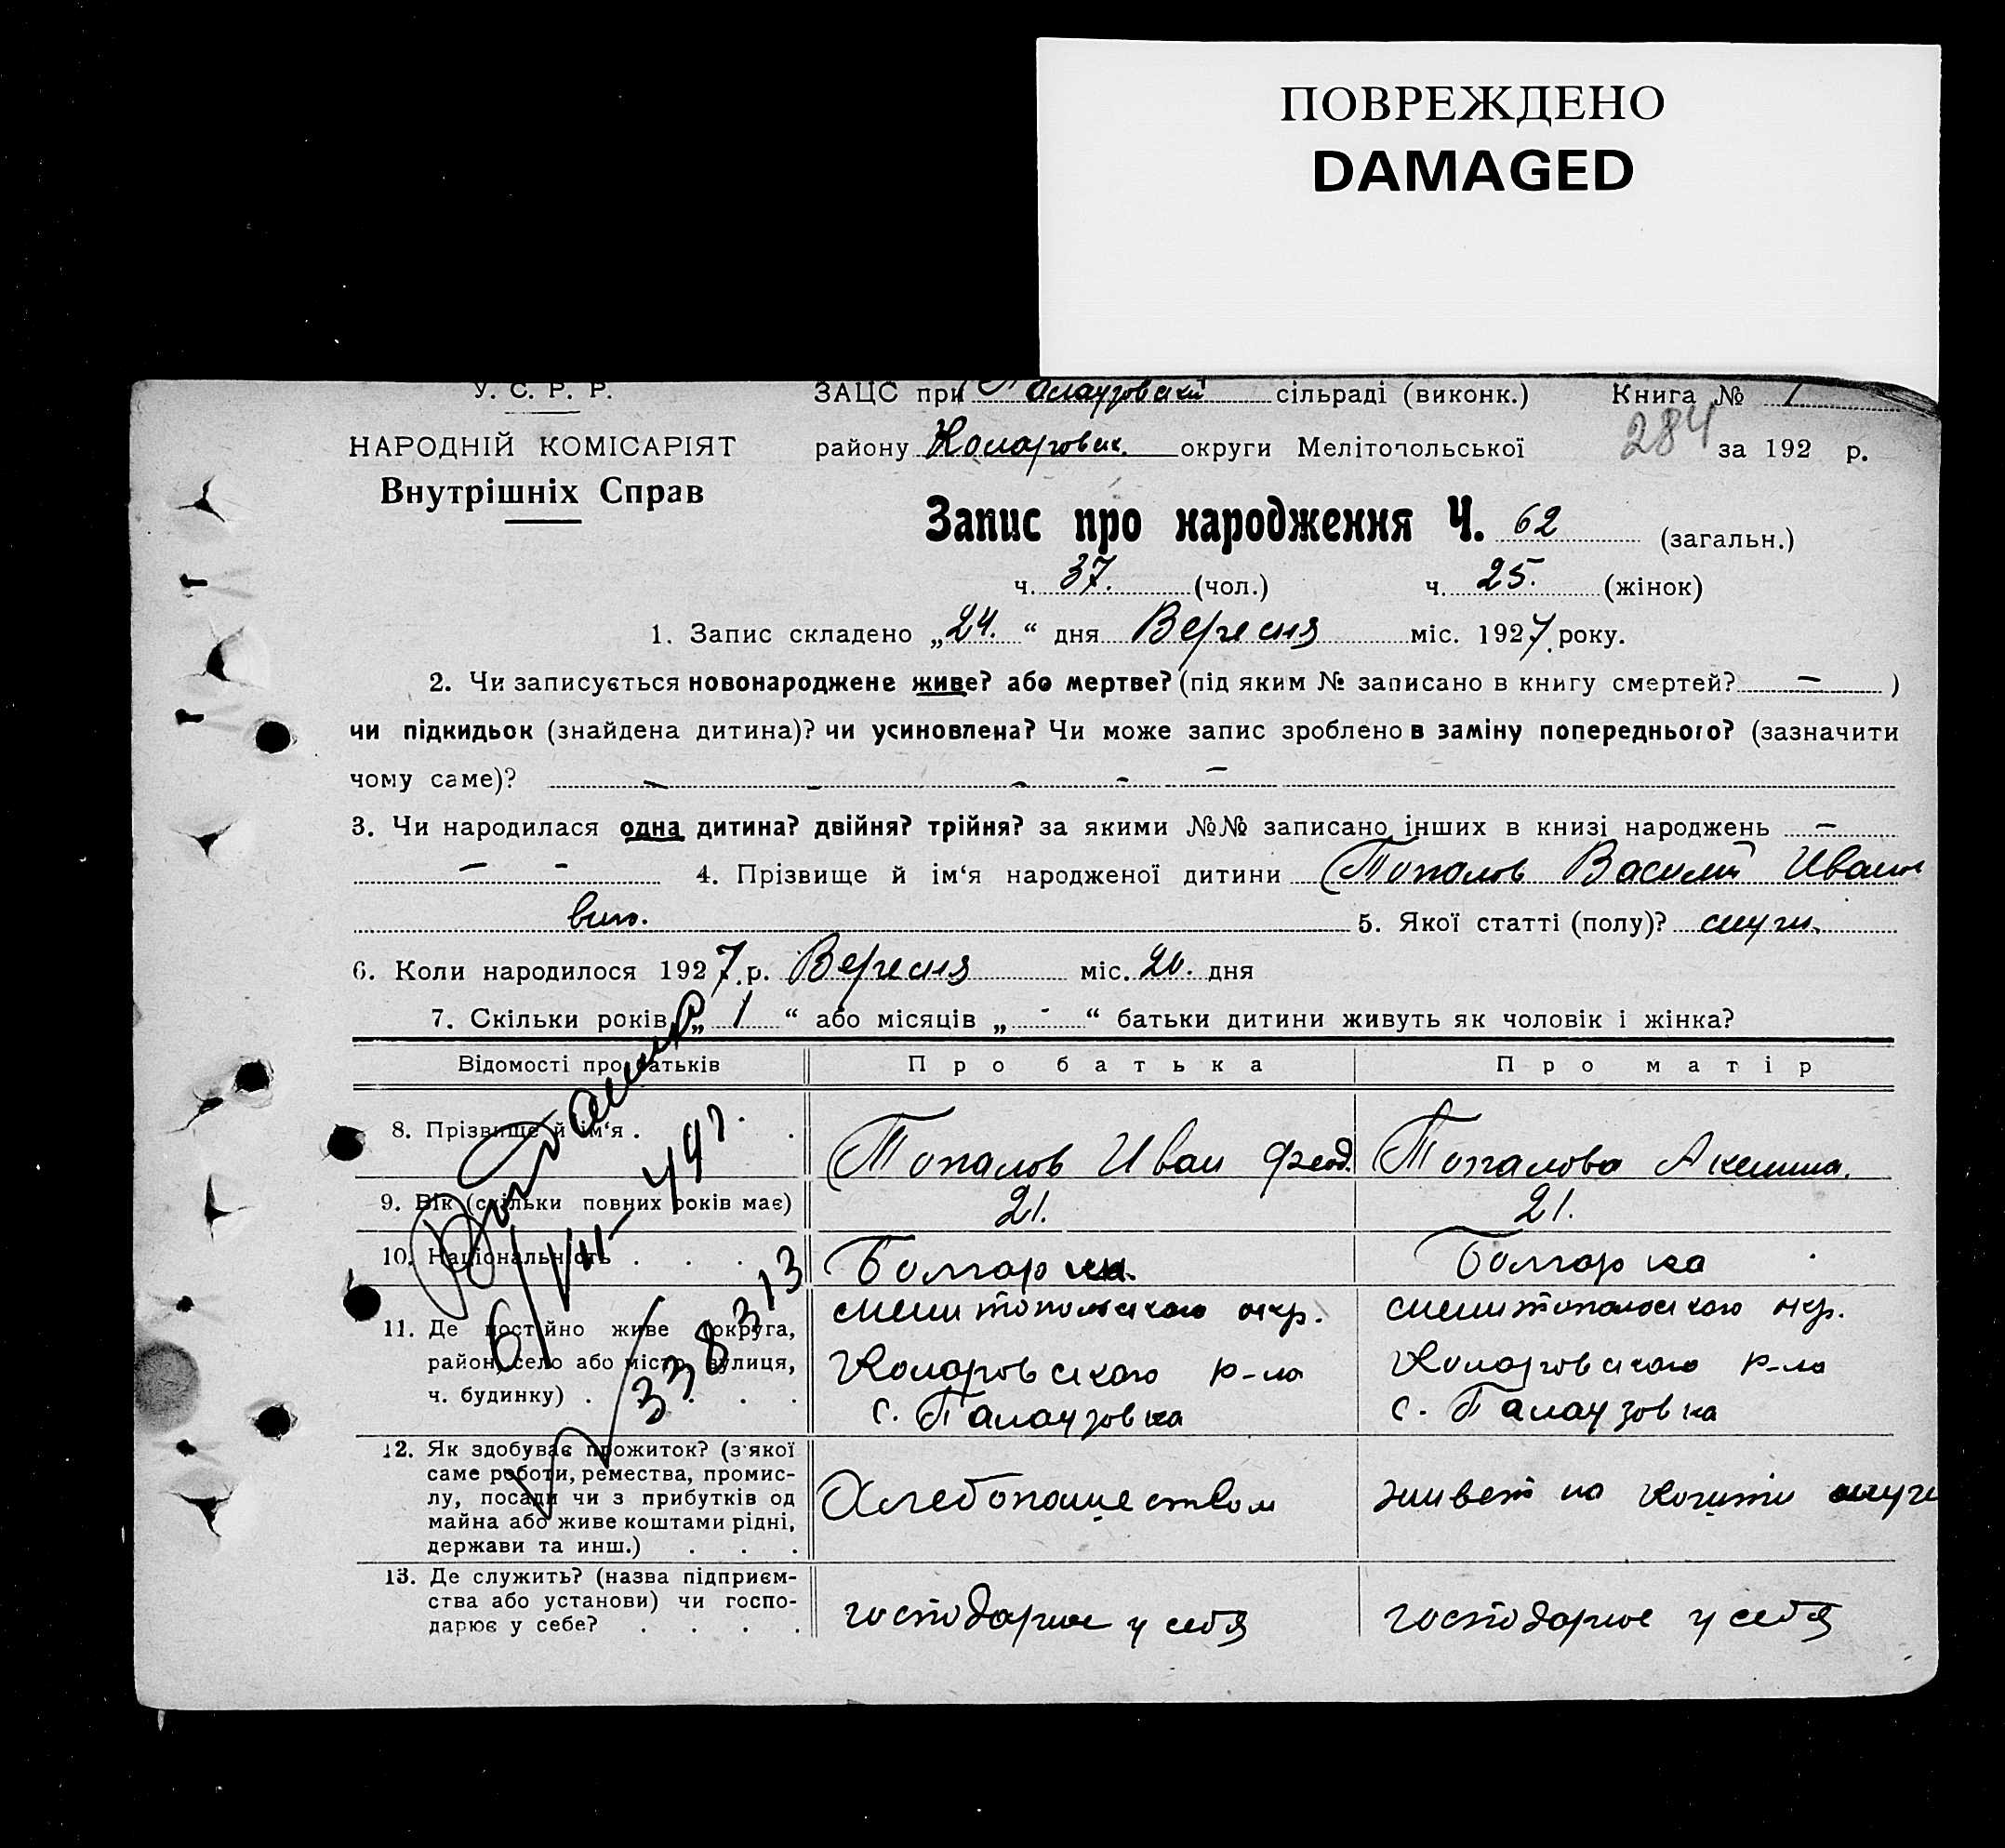 ПОВРЕЖДЕНО
DAMAGED
У. С. Р. Р.
ЗАЦС при Палаузовскій сільраді (виконк.) Книга № 1
НАРОДНІЙ КОМІСАРІЯТ
району Коларовск. округи Мелітопольської 284 за 192 р.
Внутрішніх Справ
Запис про народження Ч. 62 (загальн.)
ч. 37. (чол.) ч. 25. (жінок)
1. Запис складено „24.“ дня Вересня міс. 1927 року.
2. Чи записується новонароджене живе? або мертве? (під яким № записано в книгу смертей? – )
чи підкидьок (знайдена дитина)? чи усиновлена? Чи може запис зроблено в заміну попереднього? (зазначити
чому саме)? – – – – –
3. Чи народилася одна дитина? двійня? трійня? за якими №№ записано інших в книзі народжень –
– – 4. Прізвище й ім‘я народженої дитини Топалов Василий Ивано
вич. 5. Якої статті (полу)? муж.
6. Коли народилося 1927 р. Вересня міс. 20. дня
7. Скільки років „ 1 “ або місяців „ - “ батьки дитини живуть як чоловік і жінка?
Відомості про батьків Про батька Про матір
8. Прізвище й ім‘я . . Топалов Иван Феод. Топалова Акешиа.
9. Вік (скільки повних років має) 21. 21.
10. Національність . . . . Болгар Болгарка
11. Де постійно живе (округа, мелитопольского окр. мелитопольского окр.
район, село або місто, вулиця, Коларовского р-на Коларовского р-на
ч. будинку) . . . . с. Палаузовка с. Палаузовка
6/VII 44 г.
338313
12. Як здобуває прожиток? (з‘якої
саме роботи, ремества, промис-
лу, посади чи з прибутків од Хлебопашеством живет на кошти мужа
майна або живе коштами рідні,
держави та инш.) . . .
13. Де служить? (назва підприєм-
ства або установи) чи госпо- господарюе у себя господарюе у себя
дарює у себе? . . . .